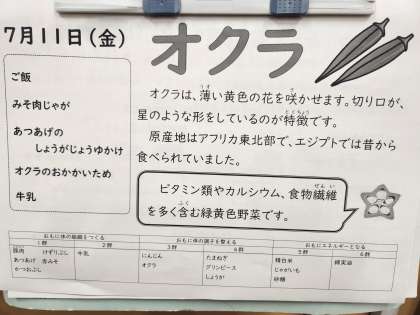 7月11日(金)
オクラ
ご飯
みそ肉じゃが
あつあげの
しょうがじょうゆかけ
オクラのおかかいため
牛乳
オクラは、薄い黄色の花を咲かせます。切り口が、
星のような形をしているのが特徴です。
原産地はアフリカ東北部で、エジプトでは昔から
食べられていました。
ビタミン類やカルシウム、食物繊維
を多く含む緑黄色野菜です。
おもに体の組織をつくる おもに体の調子を整える おもにエネルギーとなる
1群 2群 3群 4群 5群 6群
豚肉 けずりぶし 牛乳 にんじん たまねぎ 精白米 綿実油
あつあげ 赤みそ オクラ グリンピース じゃがいも
かつおぶし しょうが 砂糖